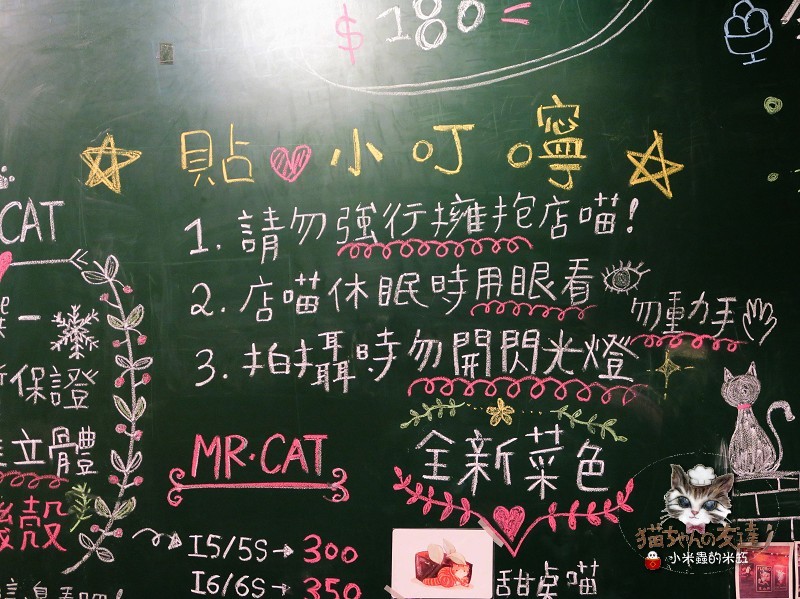 $ 180
貼♥小叮嚀
1. 請勿強行擁抱店喵!
2. 店喵休眠時用眼看 勿動手
3. 拍攝時勿開閃光燈
CAT
保證
立體
殼
MR.CAT
I5/5S→300
I6/6S→350
全新菜色
甜點喵
猫ちゃんの友達
小米蟲的米缸